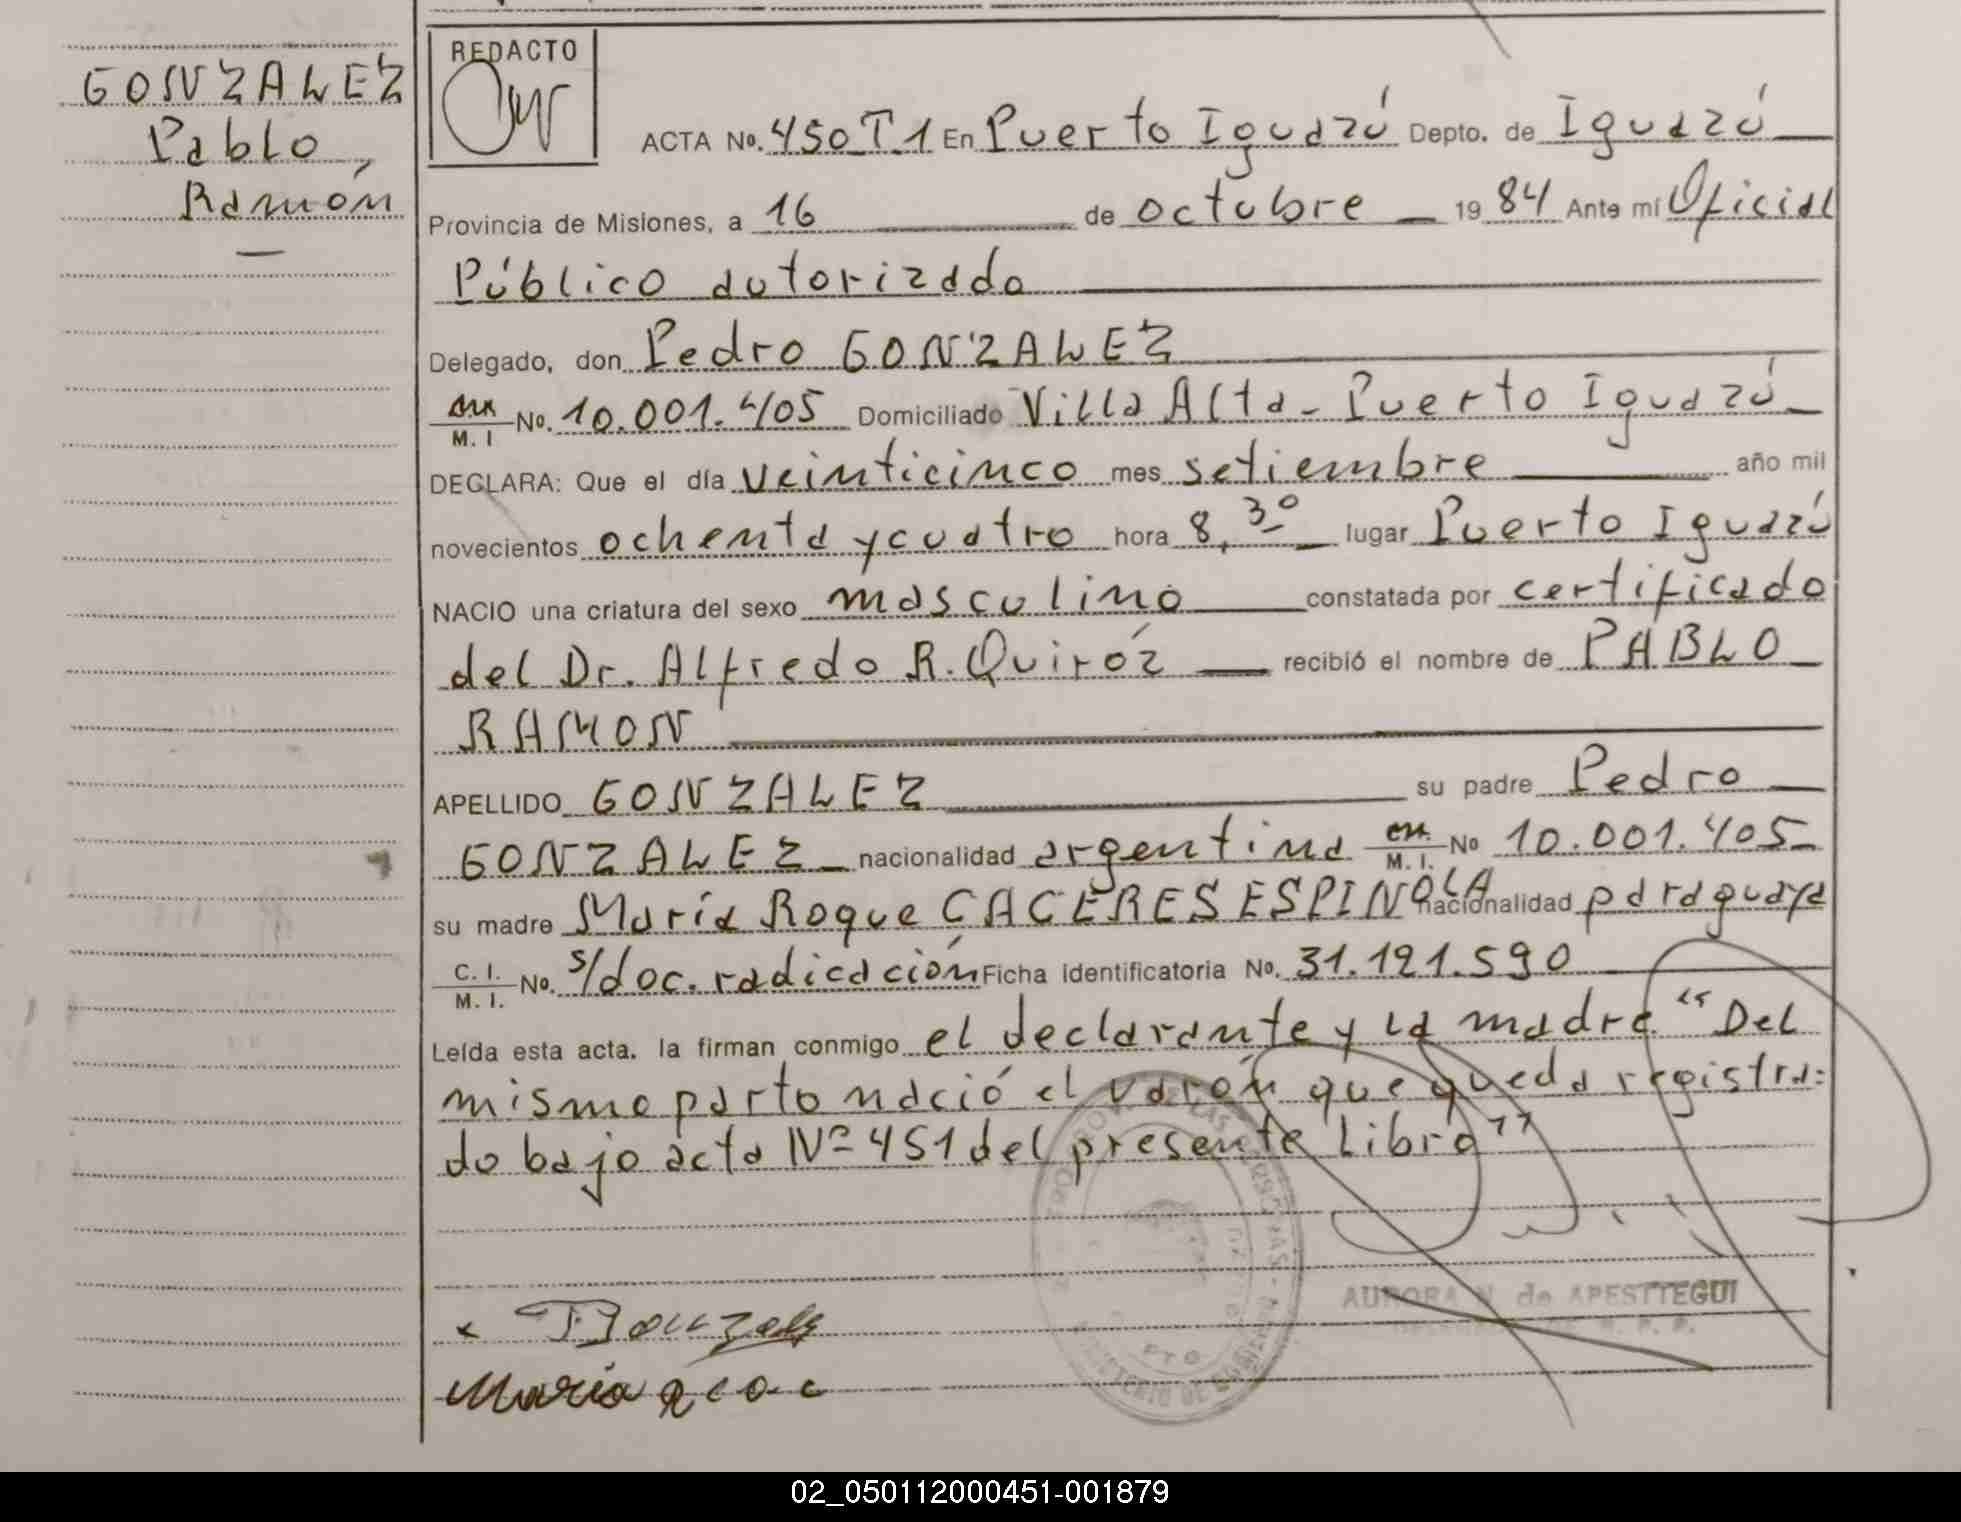 GONZALEZ
Pablo
Ramón
REDACTO
ACTA No. 450 T1 En Puerto Iguazú Depto. de Iguazú
Provincia de Misiones, a 16 de octubre 1984 Ante mí Oficial
Público autorizado
Delegado, don Pedro GONZALEZ
M. I No. 10.001.405 Domiciliado Villa Alta - Puerto Iguazú
DECLARA: Que el día veinticinco mes setiembre año mil
novecientos ochenta y cuatro hora 8,30 lugar Puerto Iguazú
NACIO una criatura del sexo masculino constatada por certificado
del Dr. Alfredo R. Quiróz recibió el nombre de PABLO
RAMON
APELLIDO GONZALEZ su padre Pedro
GONZALEZ nacionalidad argentina M. I. No 10.001.405
su madre María Roque CACERES ESPINOLA nacionalidad paraguaya
C. I. M. I. No. s/doc. radicación Ficha identificatoria No. 31.121.590
Leída esta acta. la firman conmigo el declarante y la madre "Del
mismo parto nació el varón que queda registra=
do bajo acta Nº 451 del presente Libro"
AURORA N. de APESTTEGUI
María
02_050112000451-001879